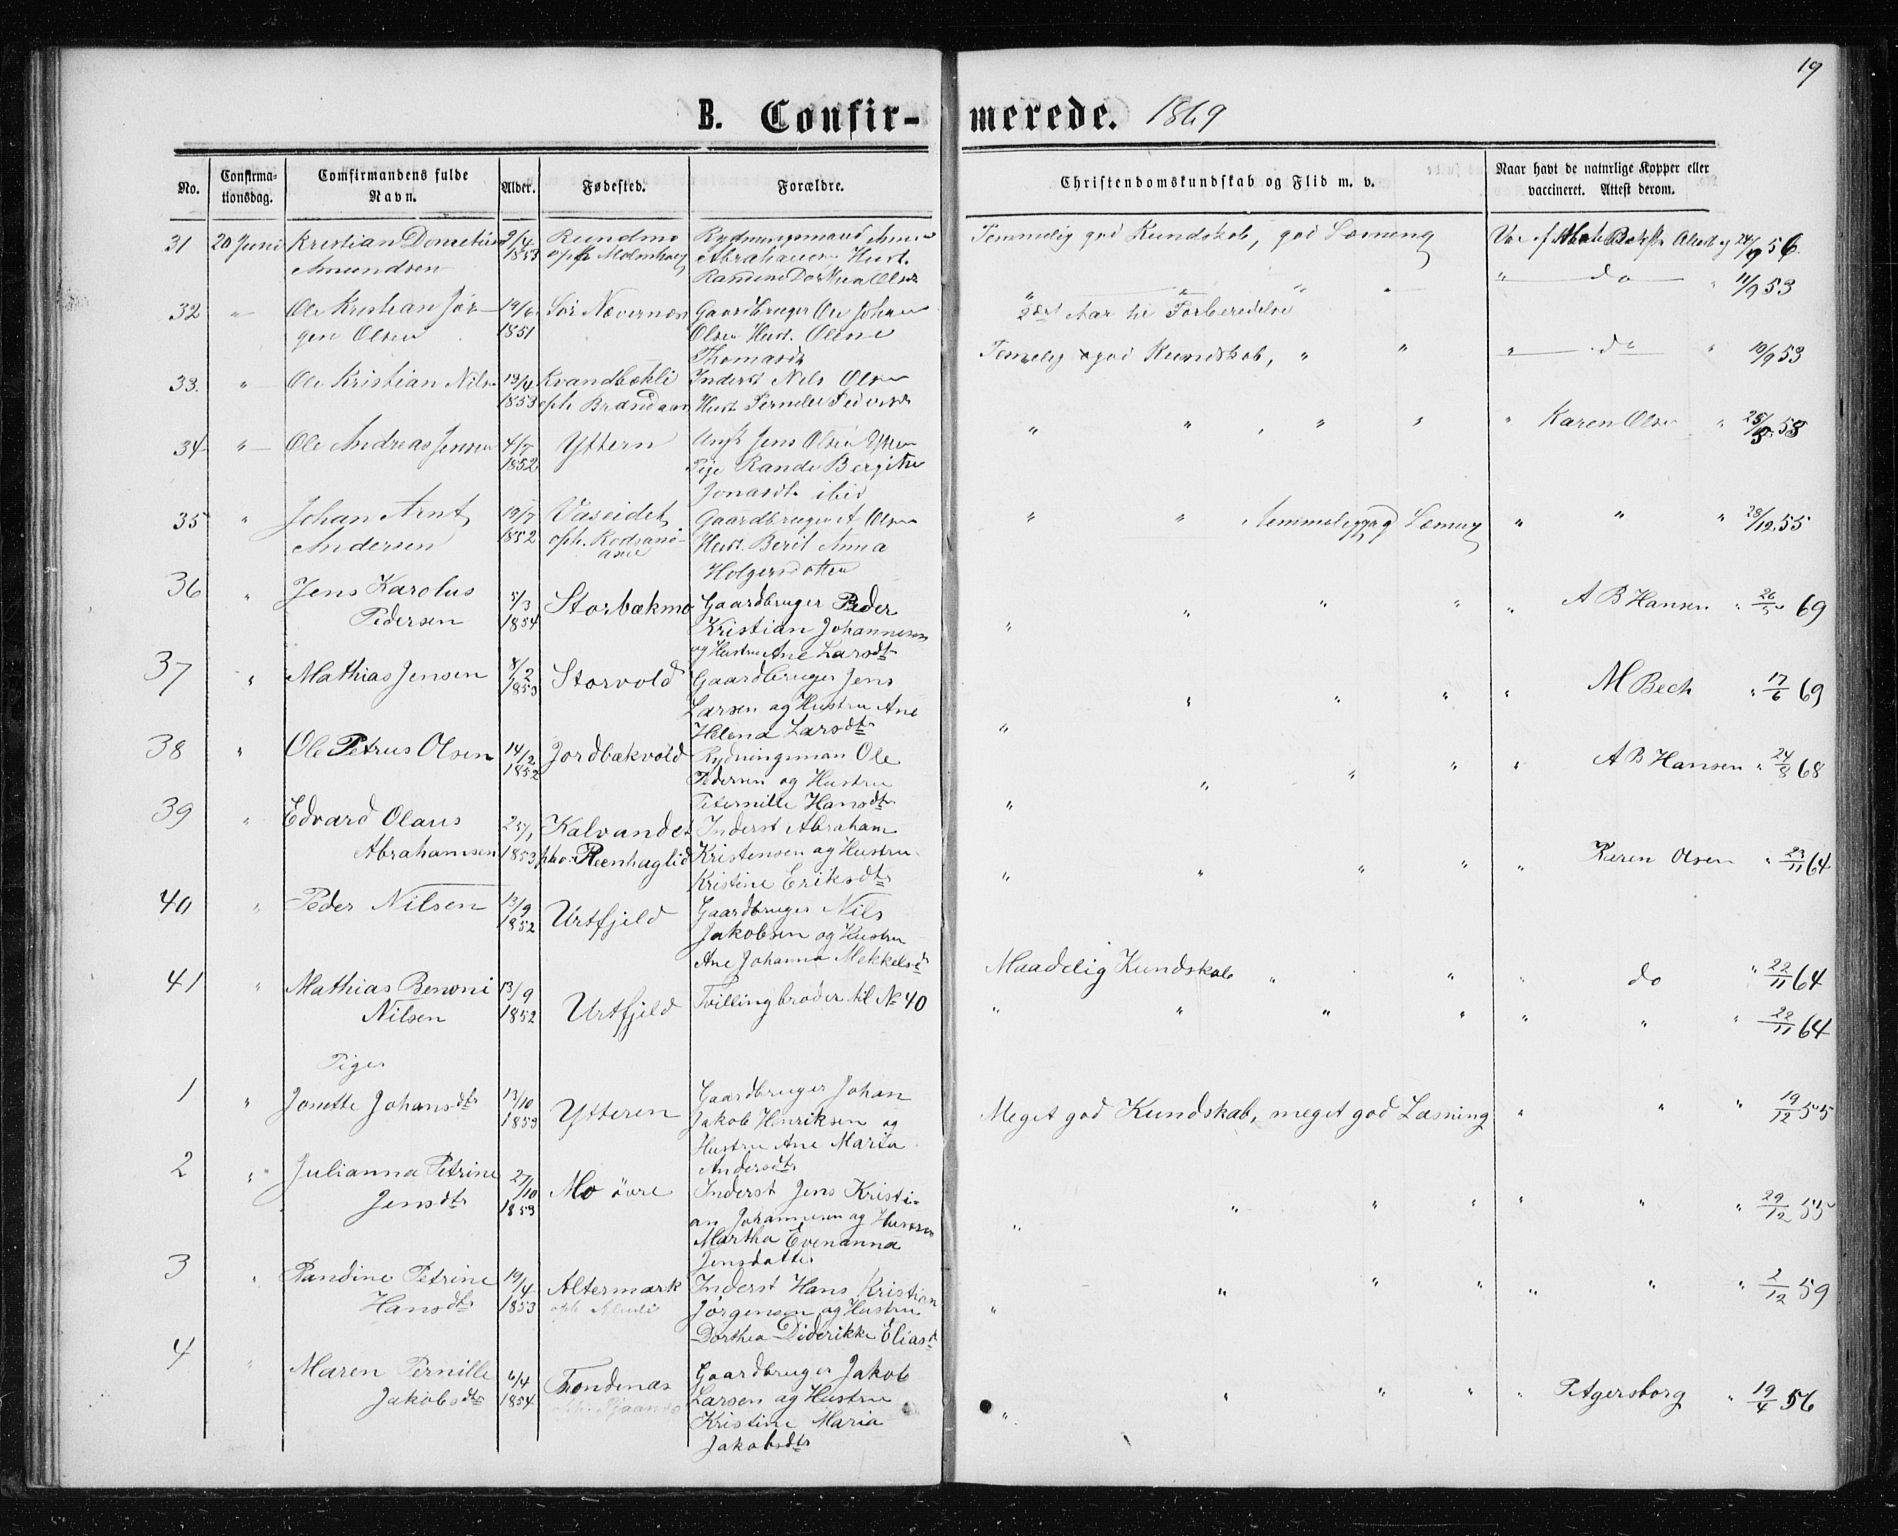 19
B. Confir-merede. 1869
No. Confirma-tionsdag. Comfirmandens fulde Navn. Alder. Fødested. Forældre. Christendomskundskab og Flid m. v. Naar havt de naturlige Kopper eller vaccineret. Attest derom.
31 20 Juni Kristian 2/4 Rundmo Rydningsmand Temmelig god Kundskab, god Læsning Vac af Attest af 24/9 56
Amundsen 1853 oph Abrahamsen Hust.
" do " 11/9 53
32 " Ole Kristian Jør- 19/6 Sör Nævernæs Gaardbruger Ole Johan 2det Aar til Forberedelse
gen Olsen 1851 Olsen Hust. Oline
Thomasdr Temmelig god Kundskab, " " " do " 10/9 53
33. " Ole Kristian Nils 13/4 Kvandbækli Inderst Nils Olsen
1853 oph. Brandaas Hust. Pernille Pedersdr
34 " Ole Andreas Jensen 4/7 Yttern Ungk Jens Olsen Ytteren " " " " " Karen Olsen " 25/ 58
1852 Pige Bergitte
Jonasdtr ibid
35 " Johan Arnt 19/7 Vaseidet Gaardbruger A Olsen " " " Læsning " " " 28/12 55
Andersen 1852 oph. Hust. Berit Anna
Holgersdatter
36 " Jens Karolus 5/3 Storbækmo Gaardbruger Peder " " " " " A B Hansen " 26/5 69
Pedersen 1854 Kristian Johannesen
og Hustru Ane Larsdtr
37 " Mathias Jensen 8/2 Storvold Gaardbruger Jens " " " " " M Bech " 17/6 69
1853 Larsen og Hustru Ane
Helena Larsdtr
38 " Ole Petrus Olsen 14/2 Jordbækvold Rydningsman Ole " " " " " A B Hansen " 24/8 68
1852 Pedersen og Hustru
Peternille Hansdtr
39 " Edvard Olaus 23/1 Kalvandet Inderst Abraham
Abrahamsen 1853 Kristensen og Hustru " " " " " Karen Olsen " 23/11 64
Kristine Eriksdtr
40 " Peder Nilsen 13/9 Urtfjeld Gaardbruger Nils
1852 Jakobsen og Hustru
Ane Johanna Mekkelsd Maadelig Kundskab " " " do " 22/11 64
41 " Mathias Benoni 13/9 Urtfjeld Tvillingbroder til No 40 " " " " " " " 22/11 64
Nilsen 1852
Piger
1 " Jonette Johansdtr 13/10 Ytteren Gaardbruger Johan Meget god Kundskab, meget god Læsning " " " 19/12 55
1853 Jakob Henriksen og
Hustru Ane Marita
Andersdtr
2 " Julianna Petrine 27/10 Mo övre Inderst Jens Kristi- " " " " " " " 29/12 55
Jensdtr 1853 an Johannesen og Hustru
Martha Evenanna
Jensdatter
3 " Randine Petrine 19/4 Altermark Inderst Hans Kristian " " " " " " " 2/12 59
Hansdtr 1853 oph Jørgensen og Hustru
Dorthea Diderikke Eliasd
4 " Maren Pernille 6/4 Fondenæs Gaardbruger Jakob
Jakobsdtr 1854 Larsen og Hustru " " " " " P Agersborg " 19/4 56
Kristine Maria
Jakobsdtr